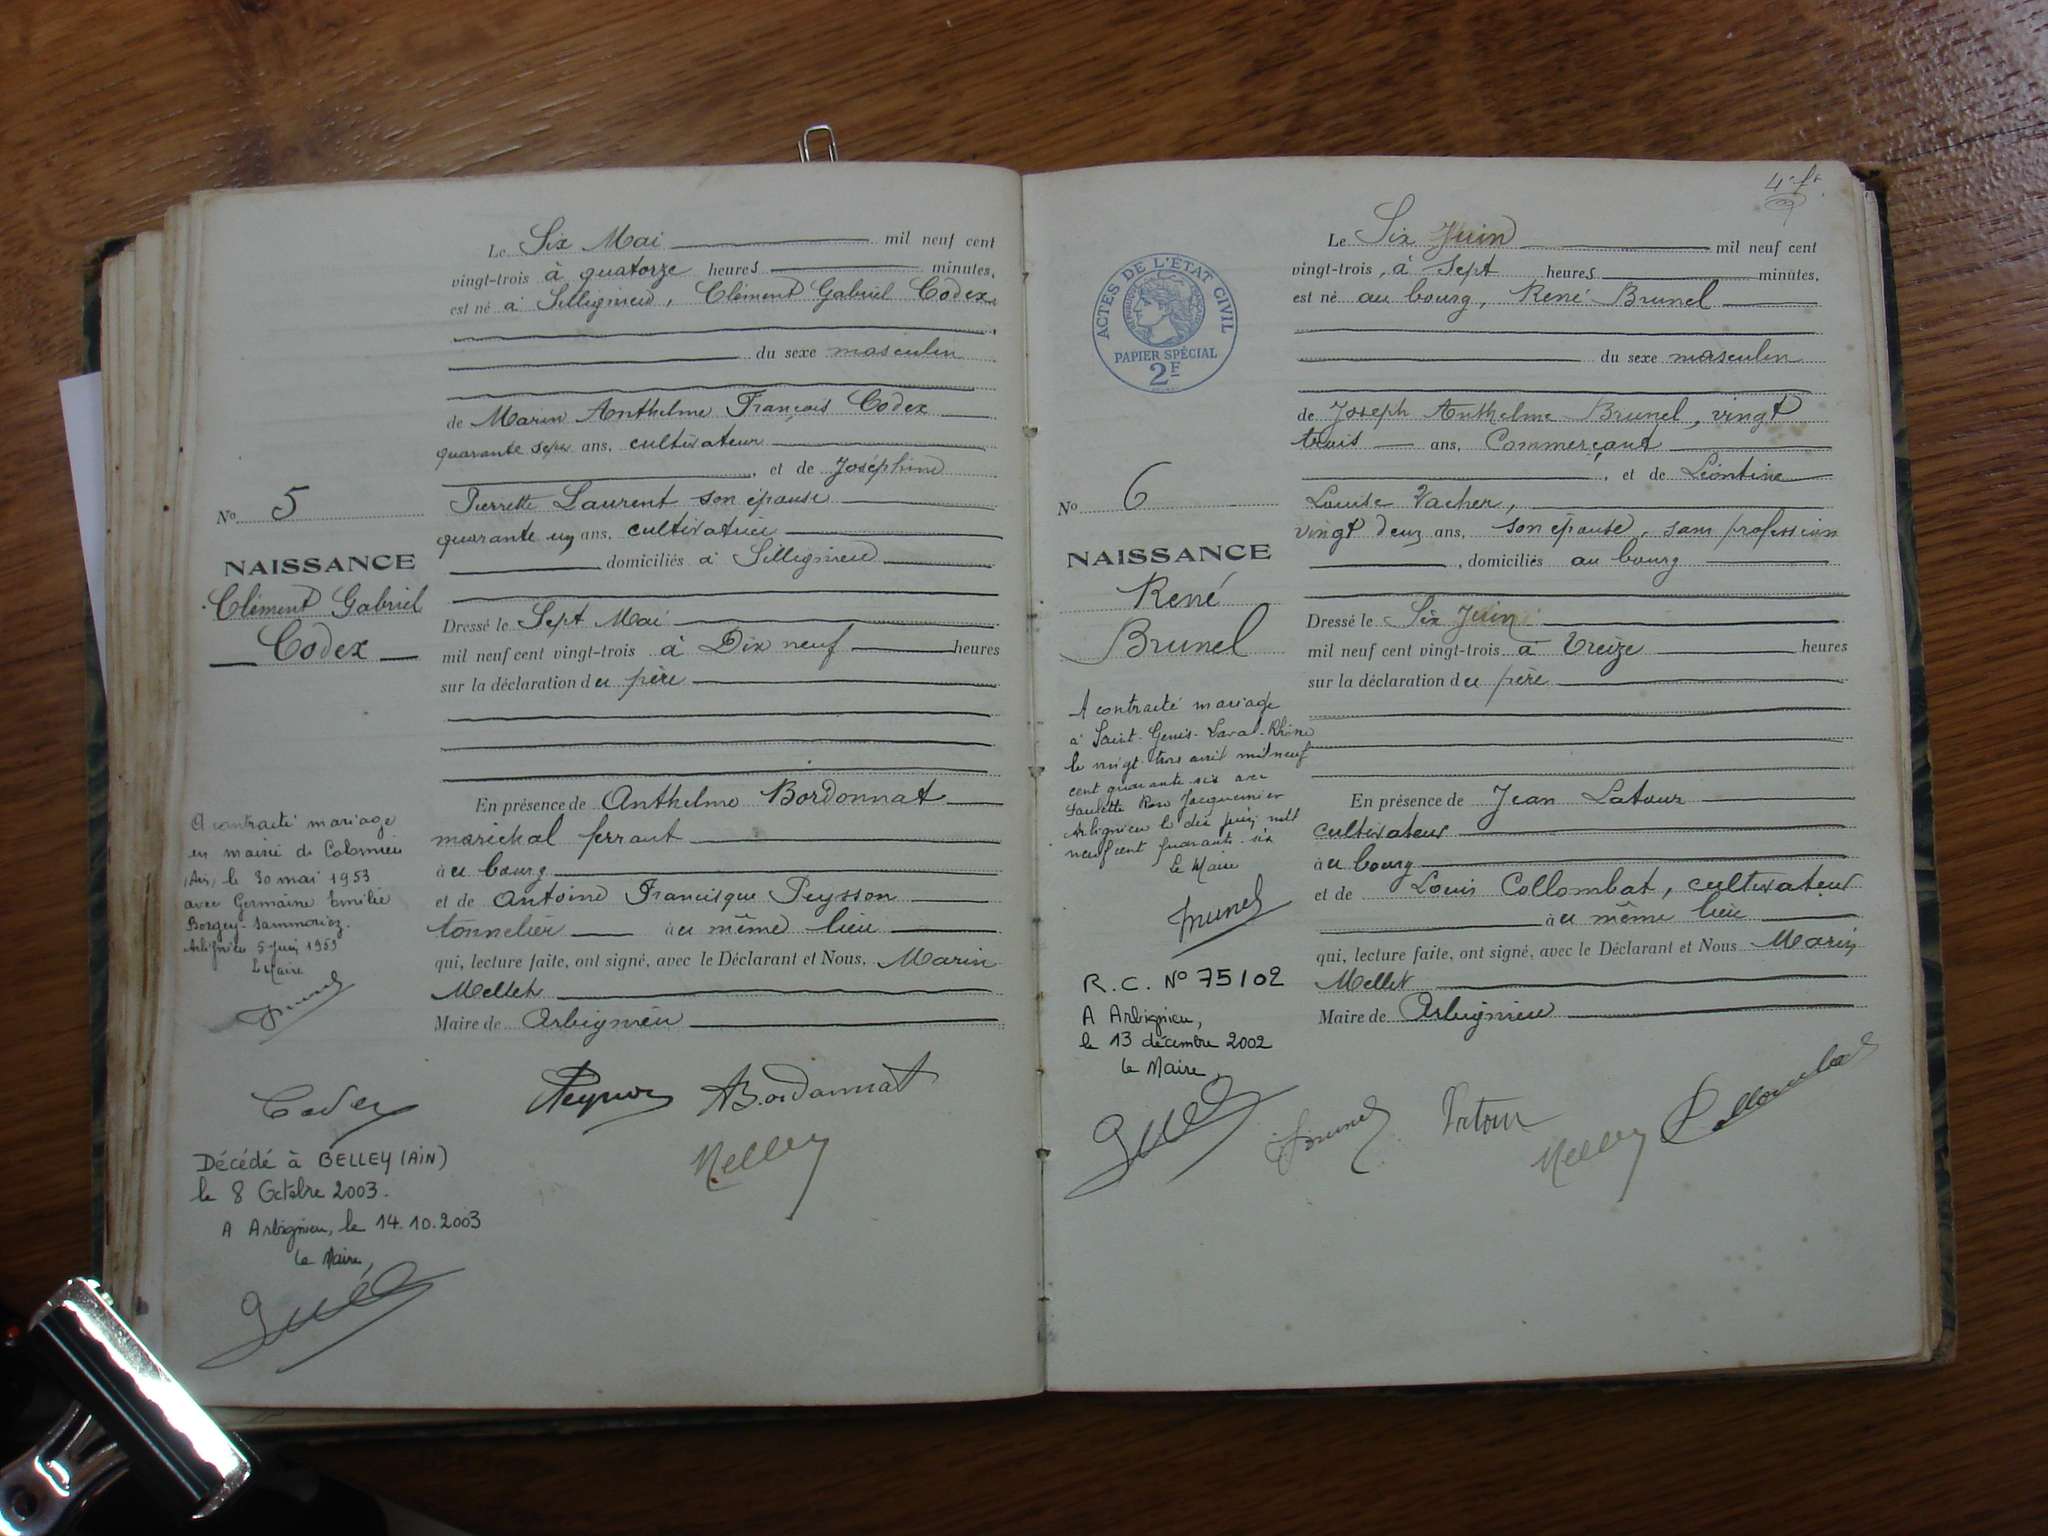 Le Six Mai mil neuf cent
vingt-trois à quatorze heures minutes,
est né à Sillignieu, Clément Gabriel Codex
du sexe masculin
de Marin Anthelme François Codex
quarante sept ans, cultivateur
, et de Joséphine
Pierrette Laurent son épouse
quarante un ans, cultivatrice
domiciliés à Sillignieu
Dressé le Sept Mai
mil neuf cent vingt-trois à Dix neuf heures
sur la déclaration du père
En présence de Anthelme Bordonnat
maréchal ferrant
au bourg
et de Antoine Francisque Peysson
tonnelier au même lieu
qui, lecture faite, ont signé, avec le Déclarant et Nous, Marin
Mellet
Maire de Arbignieu
No 5
NAISSANCE
Clément Gabriel
Codex
A contracté mariage
en mairie de Colomieu
(Ain) le 30 mai 1953
avec Germaine Emilie
Borgey-Sammoriez.
Arbignieu 5 Juin 1953
Le Maire
Brunel
Codex
Peysson
ABordonnat
Mellet
Décédé à BELLEY (AIN)
le 8 Octobre 2003.
A Arbignieu, le 14.10.2003
Le Maire,
4e ft
ACTES DE L'ÉTAT CIVIL
PAPIER SPÉCIAL
2F
Le Six Juin mil neuf cent
vingt-trois, à Sept heures minutes,
est né au bourg, René Brunel
du sexe masculin
de Joseph Anthelme Brunel, vingt
trois ans, Commerçant
, et de Léontine
Louise Vacher,
vingt deux ans, son épouse, sans profession
, domiciliés au bourg
Dressé le Six Juin
mil neuf cent vingt-trois à Treize heures
sur la déclaration du père
En présence de Jean Latour
cultivateur
au bourg
et de Louis Collombat, cultivateur
au même lieu
qui, lecture faite, ont signé, avec le Déclarant et Nous Marin
Mellet
Maire de Arbignieu
No 6
NAISSANCE
René
Brunel
A contracté mariage
à Saint-Genis-Laval-Rhône
le vingt-trois avril mil neuf
cent quarante-six avec
Paulette Rose Jacquemier
Arbignieu le dix juin mil
neuf cent quarante-six
Le Maire
Brunel
R.C. N° 75102
A Arbignieu,
le 13 décembre 2002
Le Maire,
Brunel
Latour
Mellet
Collombat